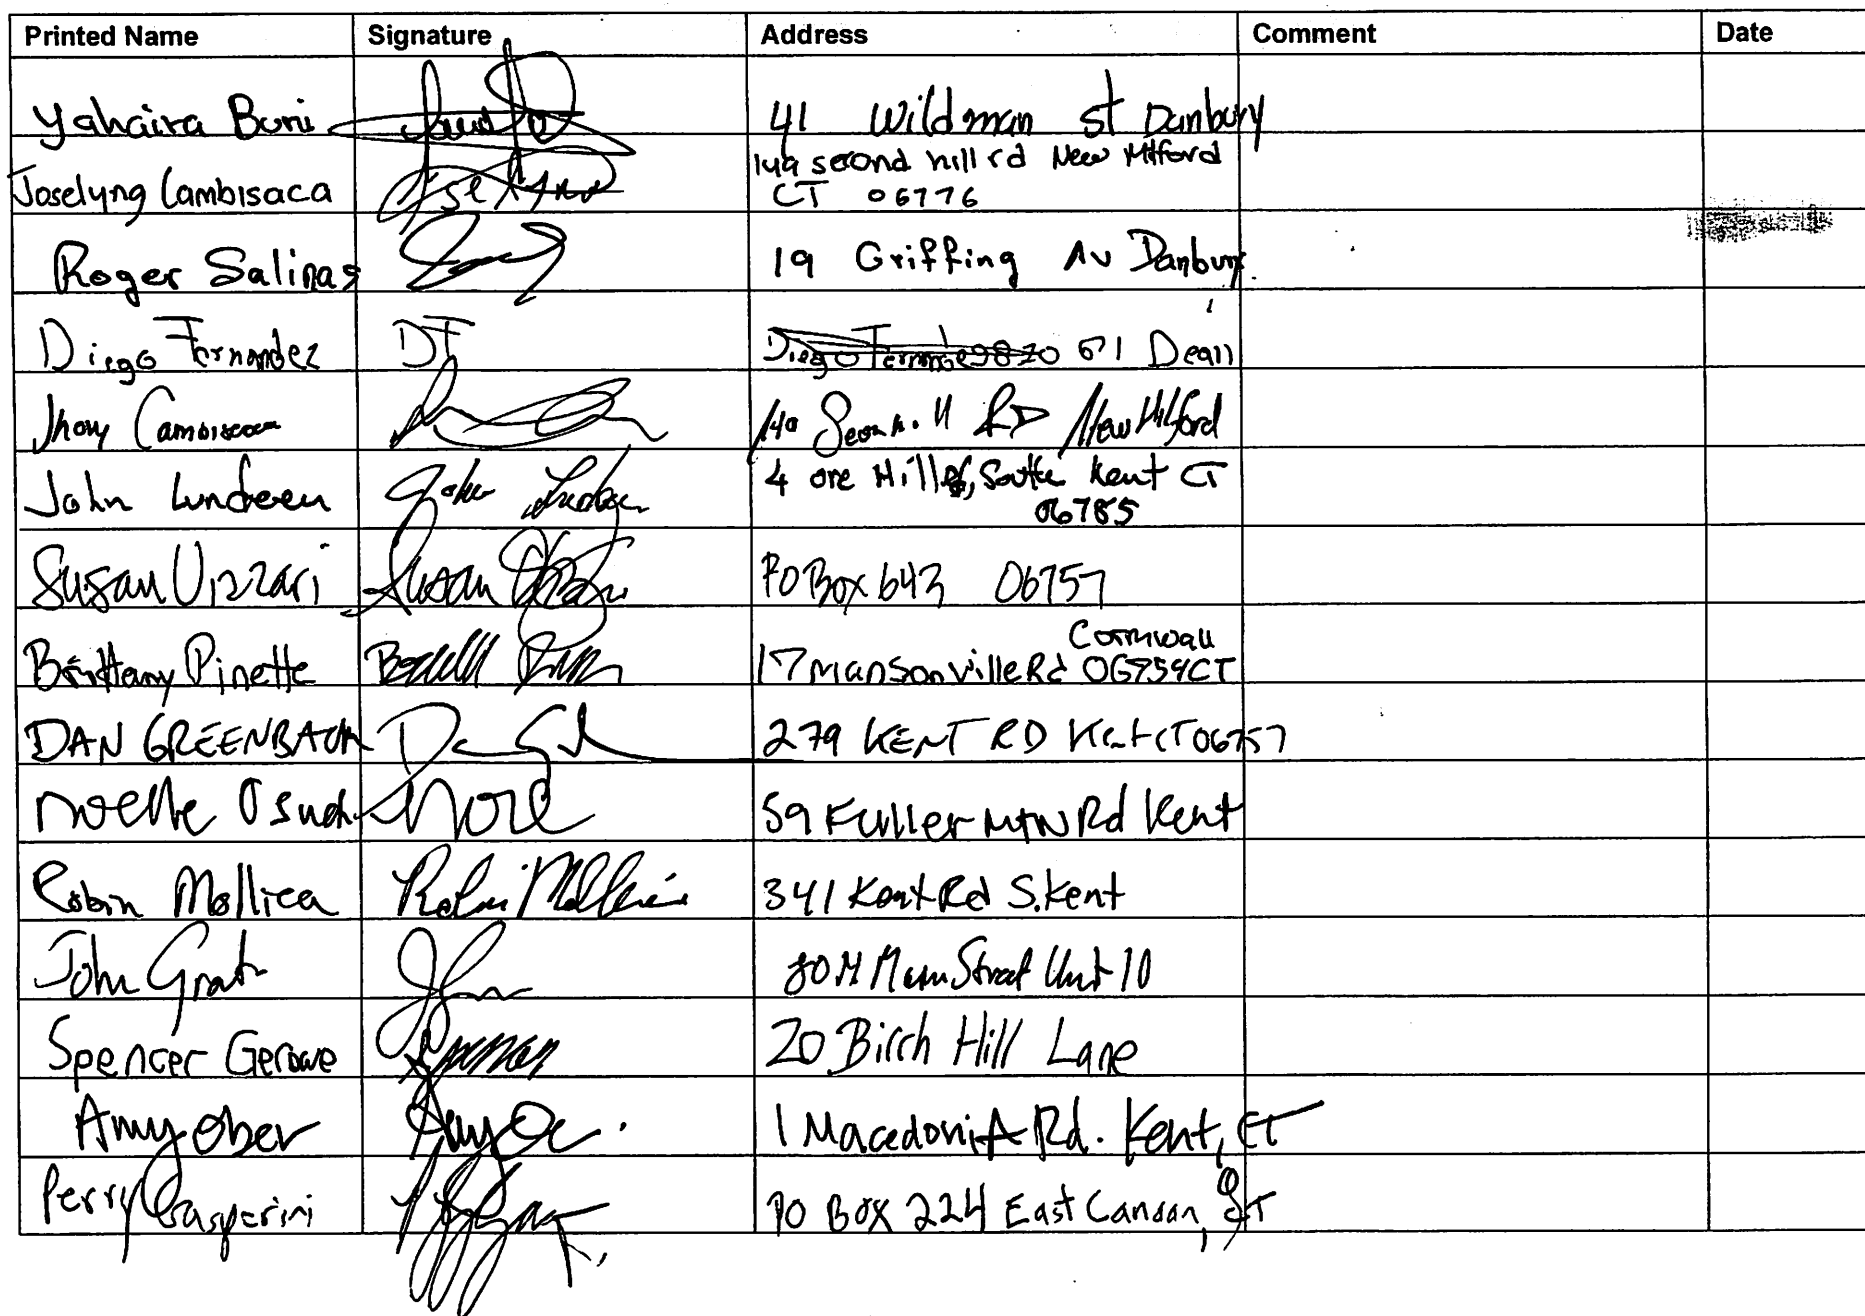 Printed Name Signature Address Comment Date
Yahaira Buni 41 Wildman St Danbury
Joselyng Cambisaca Joselyng 149 second hill rd New Milford
CT 06776
Roger Salinas 19 Griffing Av Danbury
Diego Fernandez DF 671 Dean
Jhony Cambisaca RD New Milford
John Lundeen John 4 ore Hill South Kent CT
06785
Susan Vizzari Susan PO Box 643 06757
Cornwall
Brittany Pinette 17 Mansonville Rd 06754 CT
DAN GREENBAUM 279 KENT RD Kent CT 06757
Noelle Osuch 59 Fuller MTN Rd Kent
Robin Mollica Robin Mollica 341 Kent Rd S. Kent
John Grant 80 N Main Street Unit 10
Spencer Gerowe 20 Birch Hill Lane
Amy Ober Amy O 1 Macedonia Rd. Kent, CT
Perry Gasperini PO Box 224 East Canaan, CT